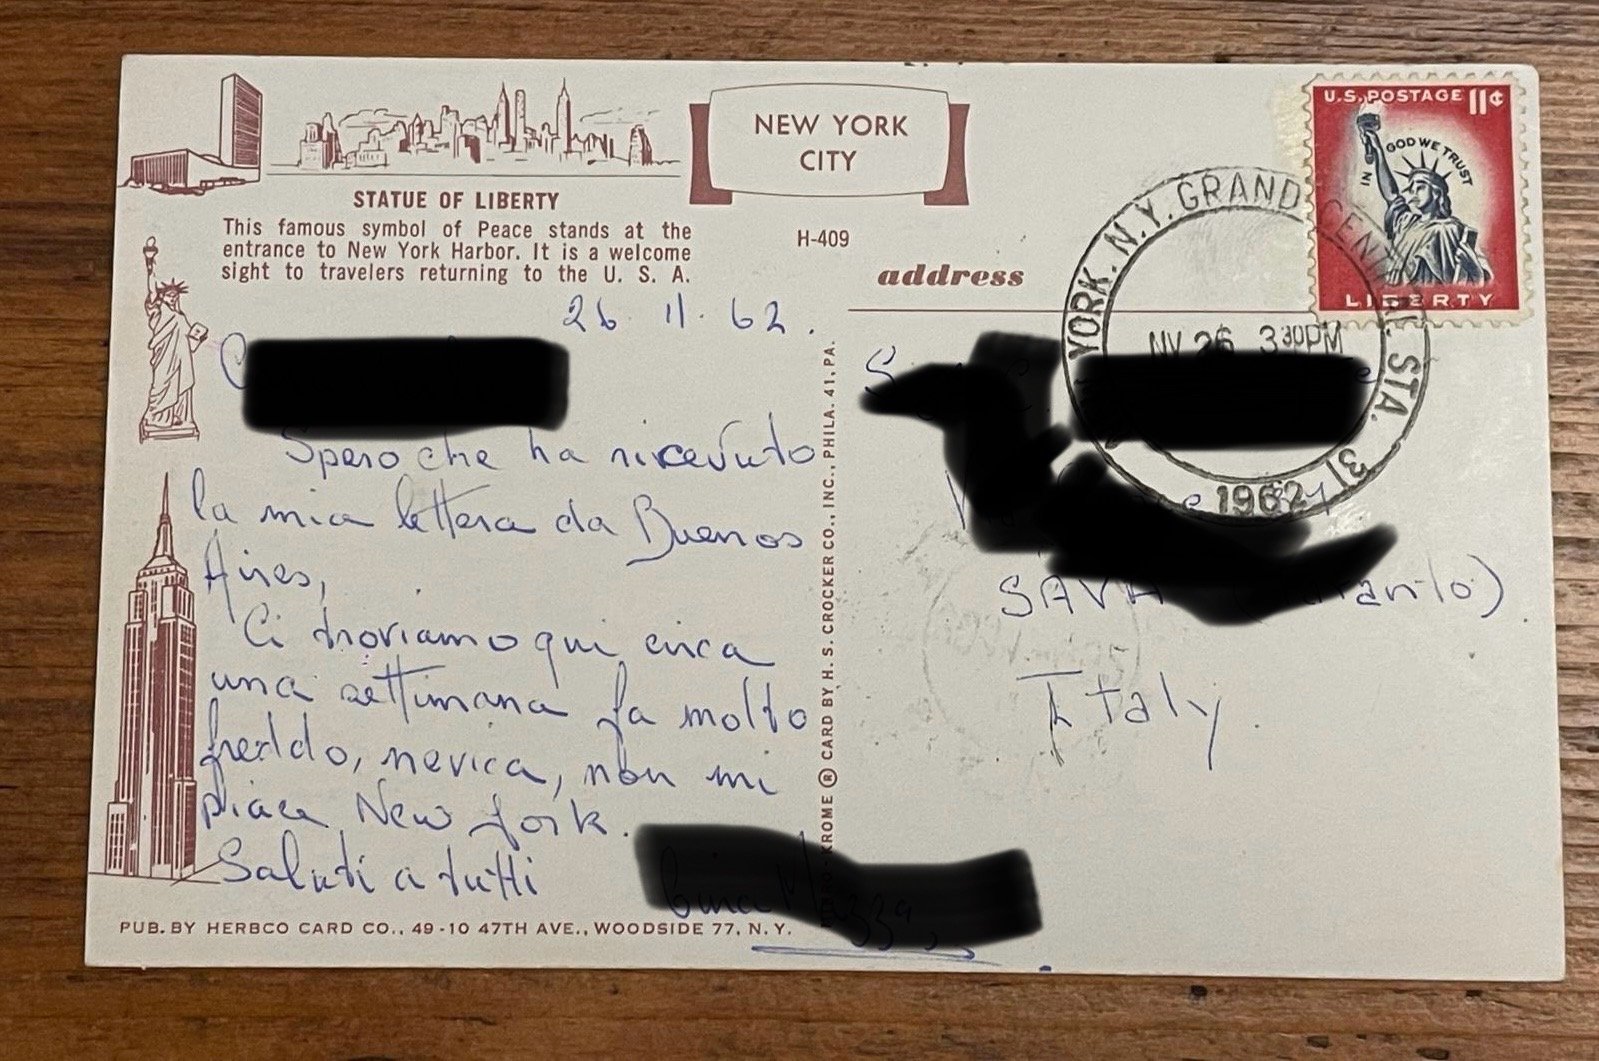 NEW YORK
CITY
STATUE OF LIBERTY
This famous symbol of Peace stands at the
entrance to New York Harbor. It is a welcome
sight to travelers returning to the U. S. A.
H-409
address
U.S. POSTAGE 11¢
IN GOD WE TRUST
LIBERTY
YORK, N.Y. GRAND CENTRAL STA. 31
NV 26 3 30PM
1962
26 11. 62.
Spero che ha ricevuto
la mia lettera da Buenos
Aires,
Ci troviamo qui circa
una settimana fa molto
freddo, nevica, non mi
piace New York.
Saluti a tutti
SAVA
Italy.
KROME ® CARD BY H. S. CROCKER CO., INC., PHILA. 41, PA.
PUB. BY HERBCO CARD CO., 49-10 47TH AVE., WOODSIDE 77, N. Y.